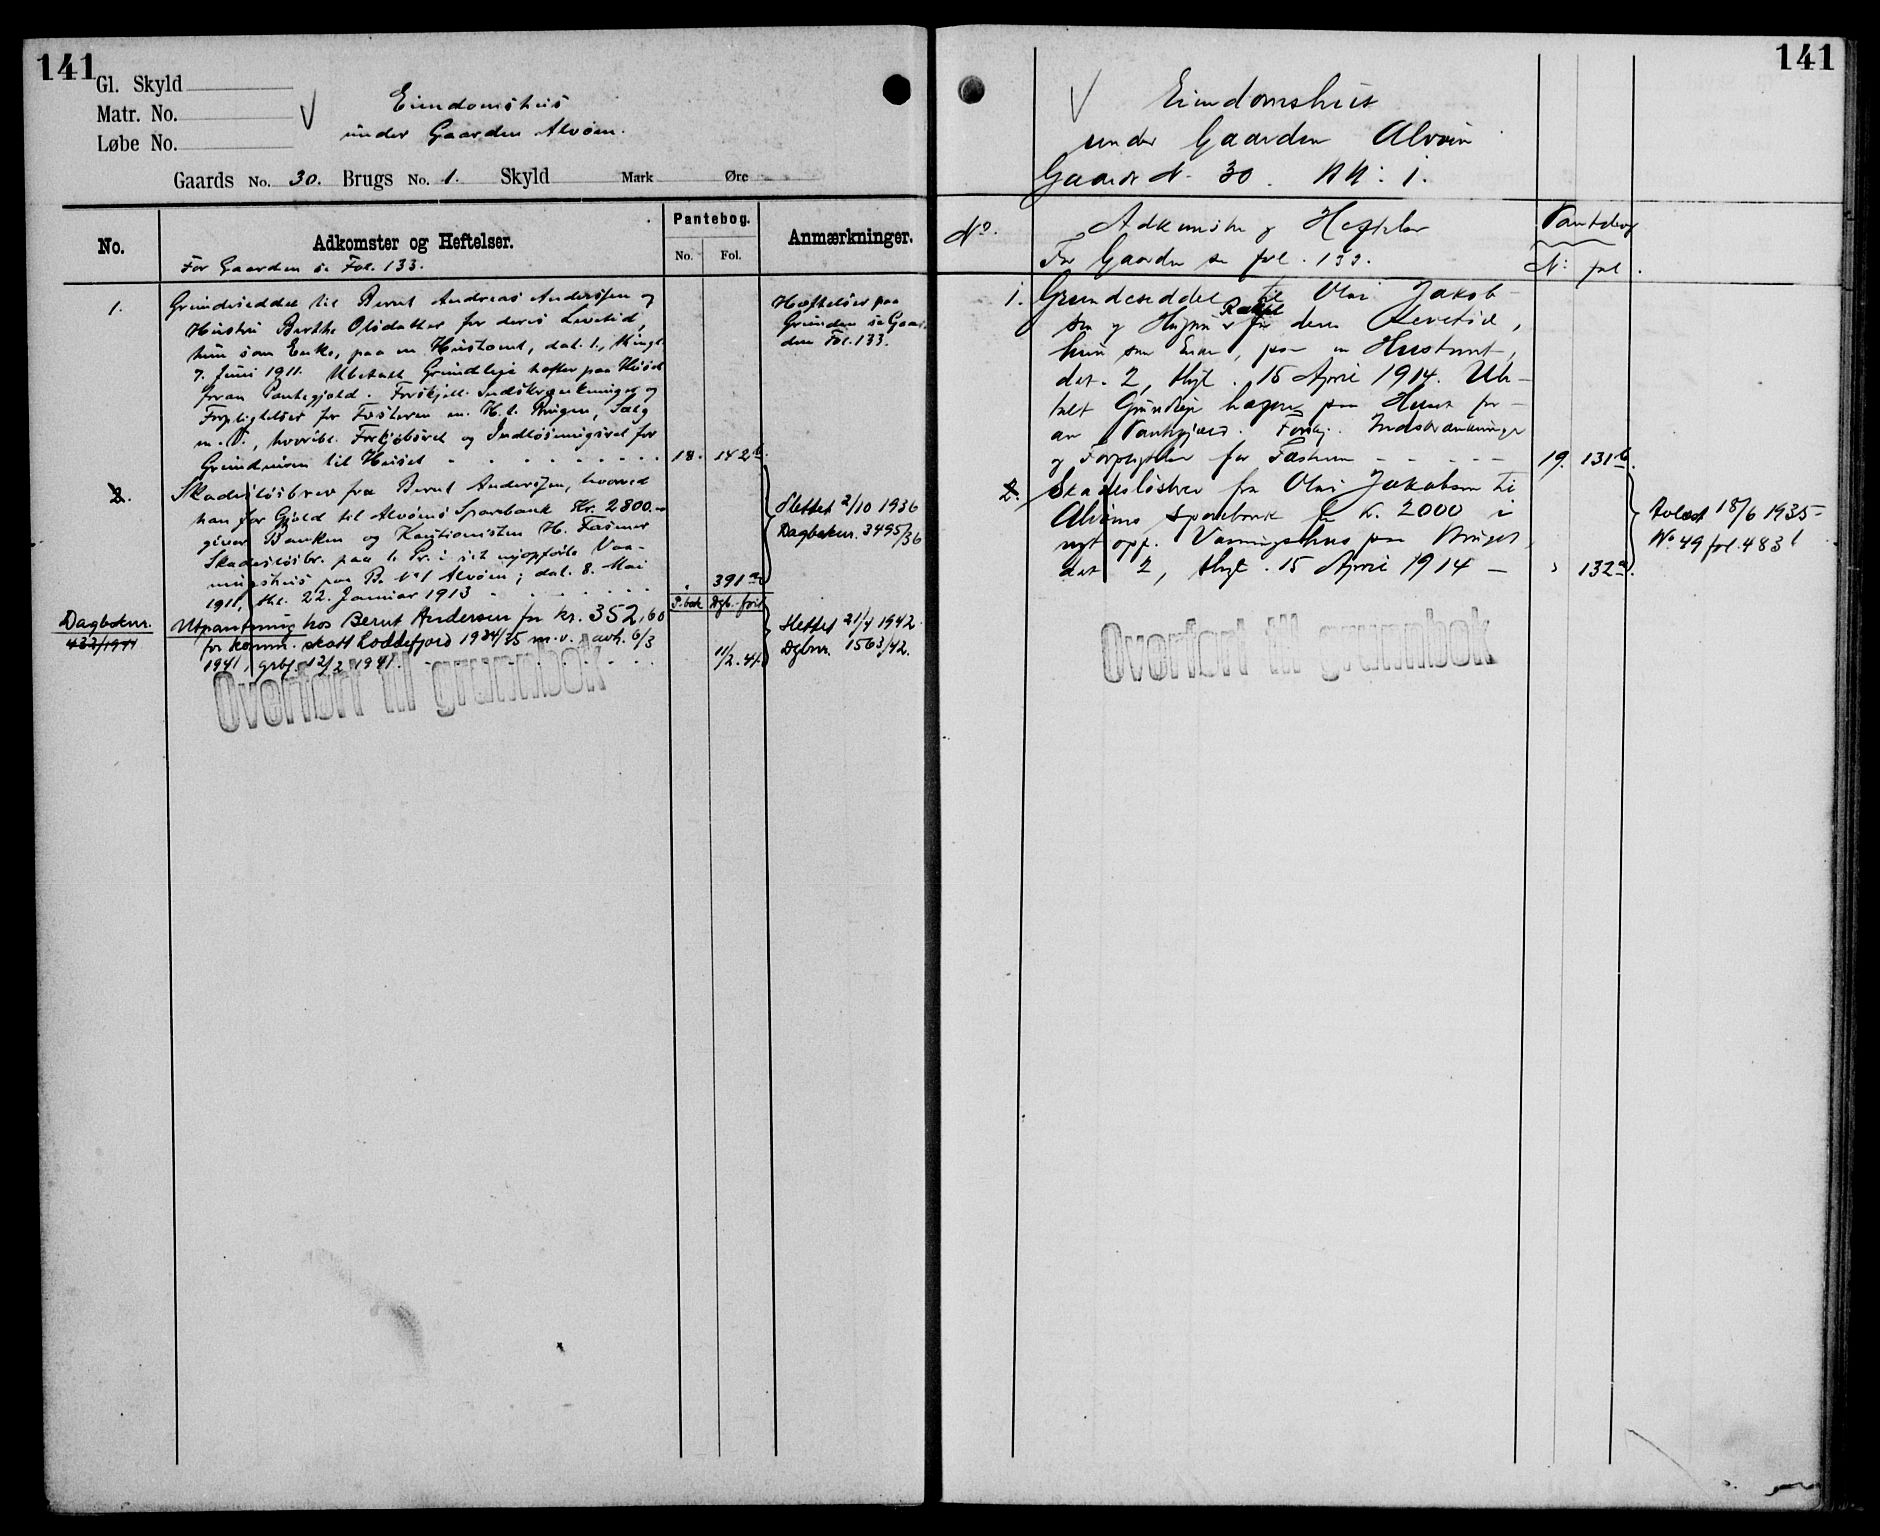 141
Gl. Skyld
Matr. No.
Løbe No.
Eiendomshus
under Gaarden Alvøen.
Gaards No. 30. Brugs No. 1. Skyld Mark Øre
No.
Adkomster og Heftelser.
Pantebog.
No. Fol.
Anmærkninger.
For Gaarden se Fol. 133.
1. Grundseddel til Bernt Andreas Anderssen og
Hustru Berthe Olsdatter for deres Levetid,
hun som Enke, paa en Hustomt, dat. 1., thingl.
7. Juni 1911. Ubetalt Grundleje hefter paa Huset
foran Pantegjæld. Forskjell. Indskrænkninger og
Forpligtelser for Fæsteren m. H. t. Brugen, Salg
m. V., hvoribl. Forkjøbsret og Indløsningsret for
Grundeieren til Huset 18. 142b.
Hæftelser paa
Grunden se Gaar-
den Fol. 133.
2. Skadesløsbrev fra Bernt Anderssen, hvorved
han for Gjæld til Alvøens Sparebank Kr. 2800.-
giver Banken og Kautionisten H. Fasmer
Skadesløsbr. paa 1. Pr. i sit nyopførte Vaa-
ningshus paa B. No 1 Alvøen; dat. 8. Mai
1911, thl. 22. Januar 1913 " 391a
Slettet 2/10 1936
Dagboknr. 3495/36
P.bok Dgb.-ført
Dagboknr.
433/1941
Utpantning hos Bernt Andersen for kr. 352,60
for komm. skatt Loddefjord 1934/35 m.v. avh. 6/3
1941, grbf. 12/2 1941. 11/2.41
Slettet 21/4 1942
Dgbnr. 1563/42.
Overført til grunnbok
141
Eiendomshus
under Gaarden Alvøen
Gaards N. 30. BN: 1.
No. Adkomster og Heftelser Pantebog
For Gaarden se fol. 133. N: fol.
1. Grundseddel til Olai Jakob-
sen og Hustru Rakel for deres Levetid,
hun som Enke, paa en Hustomt,
dat. 2, thgl. 15 April 1914. Ube-
talt Grundleje hefter paa Huset for-
an Pantegjæld. Forskj. Indskrænkninger
og Forpligtelser for Fæsteren 19. 131b.
2. Skadesløsbrev fra Olai Jakobsen til
Alvøens Sparebank for Kr. 2000 i
nyt opf. Vaaningshus paa Bruget,
dat 2, thgl. 15 April 1914 " 132a.
Avlæst 18/6 1935-
No 49 fol. 483b
Overført til grunnbok